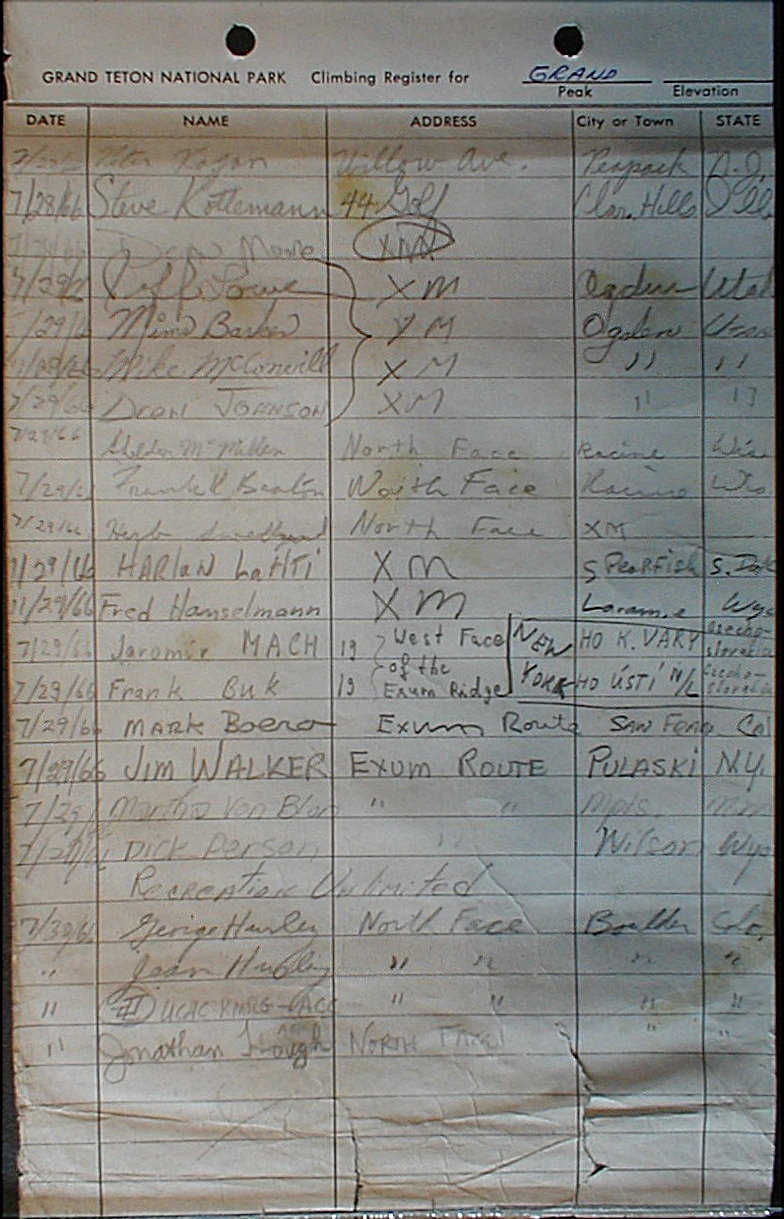 GRAND TETON NATIONAL PARK Climbing Register for GRAND
Peak Elevation
DATE NAME ADDRESS City or Town STATE
Willow Ave. Peapack N.J.
7/28/66 Steve Kottemann 44 Golf Clar. Hills Ill
Moore XM
7/29/6 Lowe XM Ogden Utah
/29/6 Barker XM Ogden
7/29/66 Mike XM " "
7/29/66 Dean JOHNSON XM " "
7/29/66 McMillen North Face Racine Wisc
7/29/6 Frank North Face Racine Wis
7/29/66 Herb North Face XM
7/29/66 HARlaN LaHTi XM SPeaRFish S. Dak
7/29/66 Fred Hanselmann XM Laramie Wyo
7/29/66 Jaromir MACH 19 West Face NEW HO K. VARY Czecho-
of the slovakia
7/29/66 Frank Buk 19 Exum Ridge YORK HO ÚSTÍ N/L Czecho-
slovakia
7/29/66 MARK Boero Exum Route SAN Cal
7/29/66 JIM WALKER EXUM ROUTE PULASKI N.Y.
7/29/ Martha Von Blon " " Mpls.
7/29/66 Dick Person " Wilson Wyo
Recreation Unlimited
7/30/66 George Hurley North Face Boulder Colo.
" Joan Hurley " " " "
" III UCAC " " " "
" Jonathan Hough NORTH FACE " "